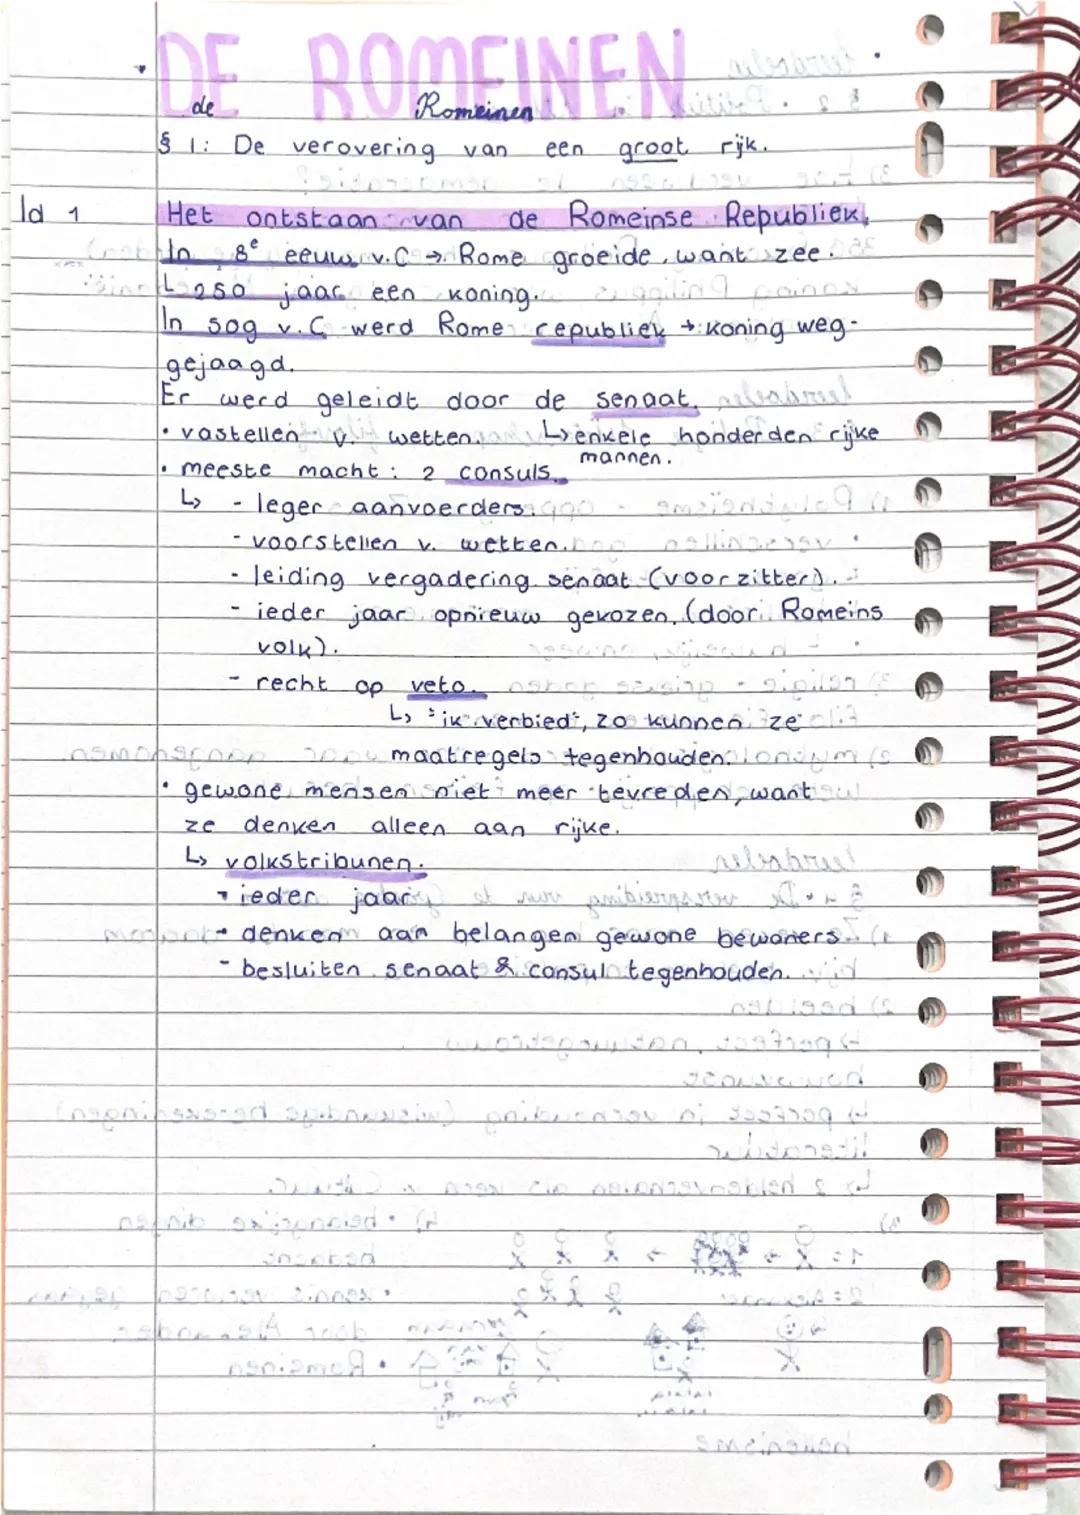 DE ROMEINEN
de Romeinen
§ 1: De verovering van een groot rijk.
ld 1 Het ontstaan van de Romeinse Republiek.
In 8e eeuw v.C → Rome groeide, want zee.
↳ 250 jaar een koning.
In 509 v.C werd Rome republiek → koning weg-
gejaagd.
Er werd geleidt door de senaat.
• vastellen v. wetten. ↳ enkele honderden rijke
mannen.
• meeste macht: 2 consuls.
↳ - leger aanvoerders.
- voorstellen v. wetten.
- leiding vergadering senaat (voorzitter).
- ieder jaar opnieuw gekozen. (door Romeins
volk).
- recht op veto.
↳ "ik verbied", zo kunnen ze
maatregels tegenhouden.
• gewone mensen niet meer tevreden, want
ze denken alleen aan rijke.
↳ volkstribunen.
- ieder jaar
- denken aan belangen gewone bewoners.
- besluiten senaat & consul tegenhouden.